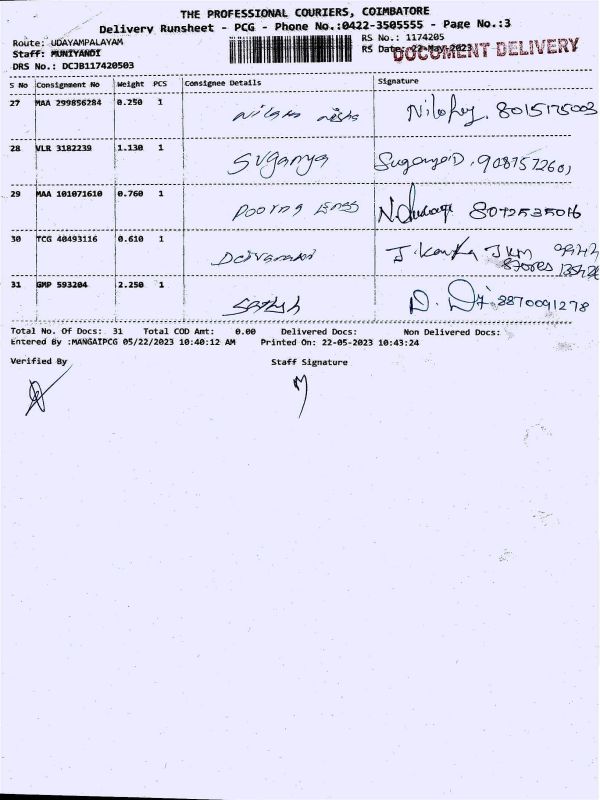 THE PROFESSIONAL COURIERS, COIMBATORE
Delivery Runsheet - PCG - Phone No.:0422-3505555 - Page No.:3
Route: UDAYAMPALAYAM
RS No.: 1174205
Staff: MUNIYANDI
RS Date: 22-May-2023
DOCUMENT DELIVERY
DRS No.: DCJB117420503
S No Consignment No Weight PCS Consignee Details Signature
27 MAA 299856284 0.250 1 8015175003
28 VLR 3182239 1.130 1 Suganya Suganya D, 9087572601
29 MAA 101071610 0.760 1 Poorna 8072535016
30 TCG 40493116 0.610 1 Deivanani
31 GMP 593204 2.250 1 Satish 8870091278
Total No. Of Docs: 31 Total COD Amt: 0.00 Delivered Docs: Non Delivered Docs:
Entered By :MANGAIPCG 05/22/2023 10:40:12 AM Printed On: 22-05-2023 10:43:24
Verified By Staff Signature